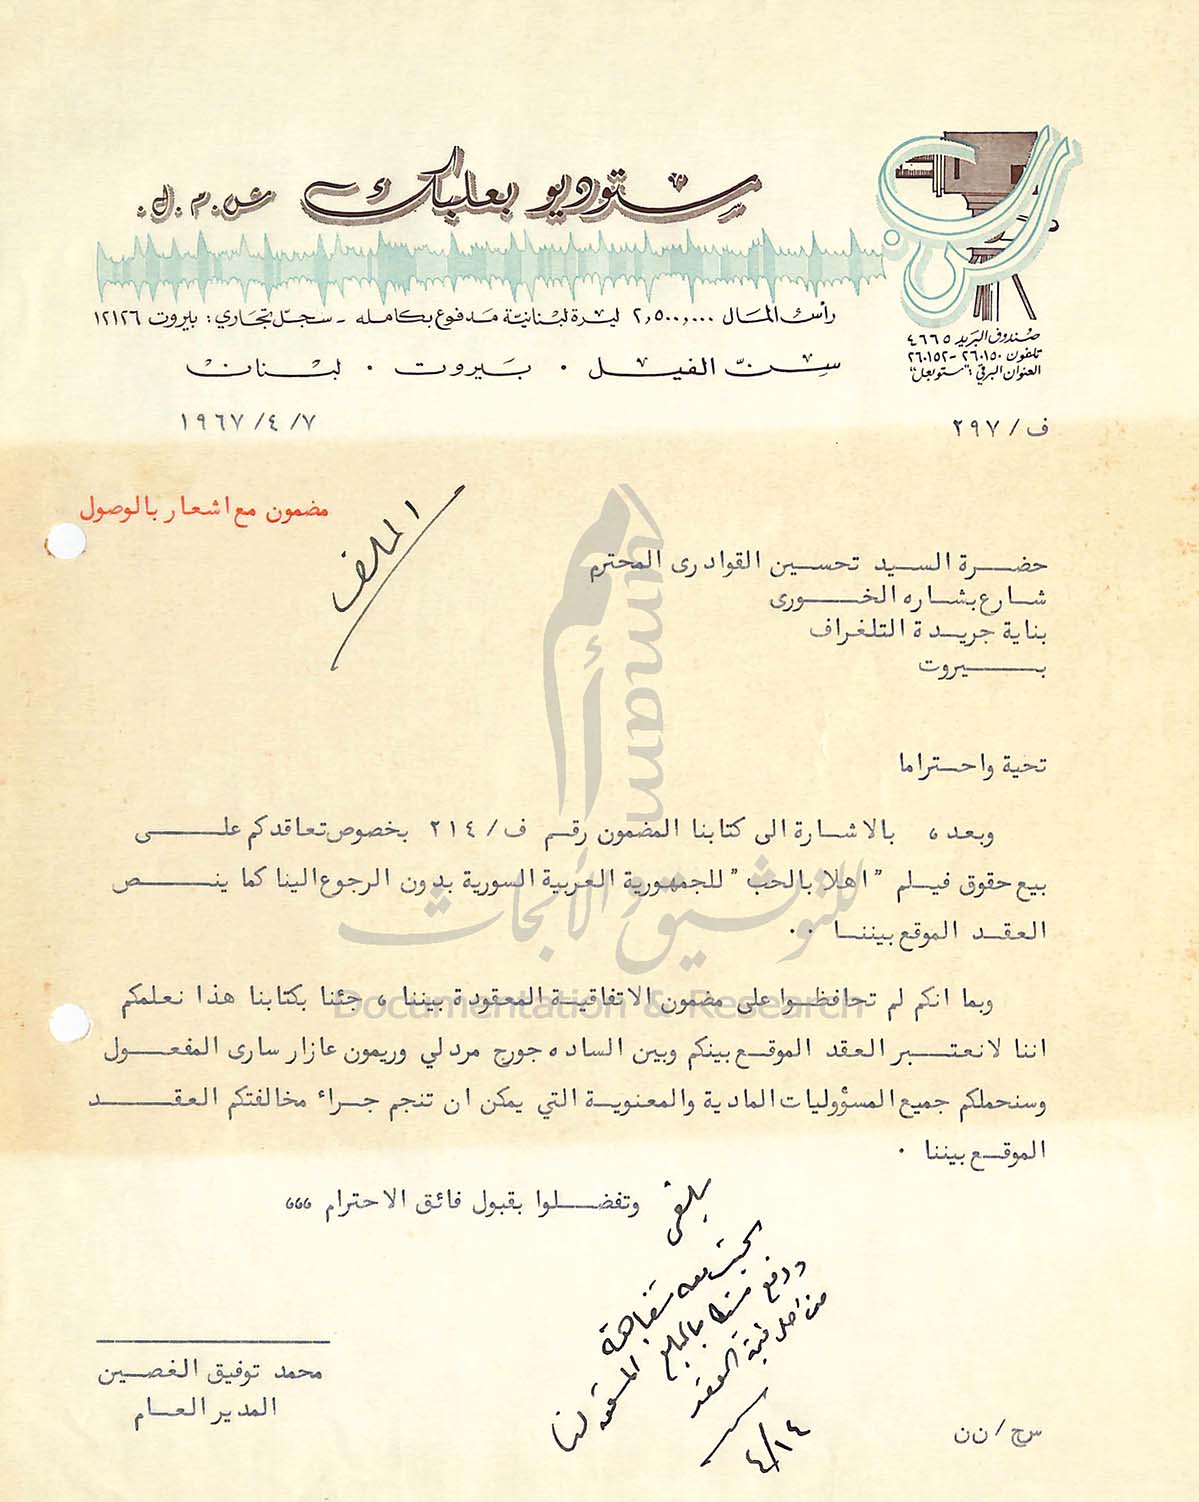 ستوديو بعلبك ش.م.ل.
رأس المال ٢,٥٠٠,٠٠٠ ليرة لبنانية مدفوع بكامله - سجل تجاري: بيروت ١٢١٢٦
سن الفيل . بيروت . لبنان
صندوق البريد ٤٦٦٥
تلفون ٢٦٠١٥٠ - ٢٦٠١٥٢
العنوان البرقي: "ستوبعل"
ف / ٢٩٧
١٩٦٧ /٤ /٧
مضمون مع اشعار بالوصول
الملف
حضرة السيد تحسين القوادرى المحترم
شارع بشاره الخورى
بناية جريدة التلغراف
بيروت
تحية واحتراما
وبعده بالاشارة الى كتابنا المضمون رقم ف / ٢١٤ بخصوص تعاقدكم على
بيع حقوق فيلم "اهلا بالحب" للجمهورية العربية السورية بدون الرجوع الينا كما ينص
العقد الموقع بيننا ..
وبما انكم لم تحافظوا على مضمون الاتفاقية المعقودة بيننا ، جئنا بكتابنا هذا نعلمكم
اننا لا نعتبر العقد الموقع بينكم وبين الساده جورج مردلي وريمون عازار سارى المفعول
وسنحملكم جميع المسؤوليات المادية والمعنوية التي يمكن ان تنجم جراء مخالفتكم العقد
الموقع بيننا .
وتفضلوا بقبول فائق الاحترام ،،،
ودفع
بالمبلغ
من اصل قيمة العقد
٤/١٤
محمد توفيق الغصين
المدير العام
س ج / ن ن
umam
أمم
للتوثيق والأبحاث
Documentation & Research